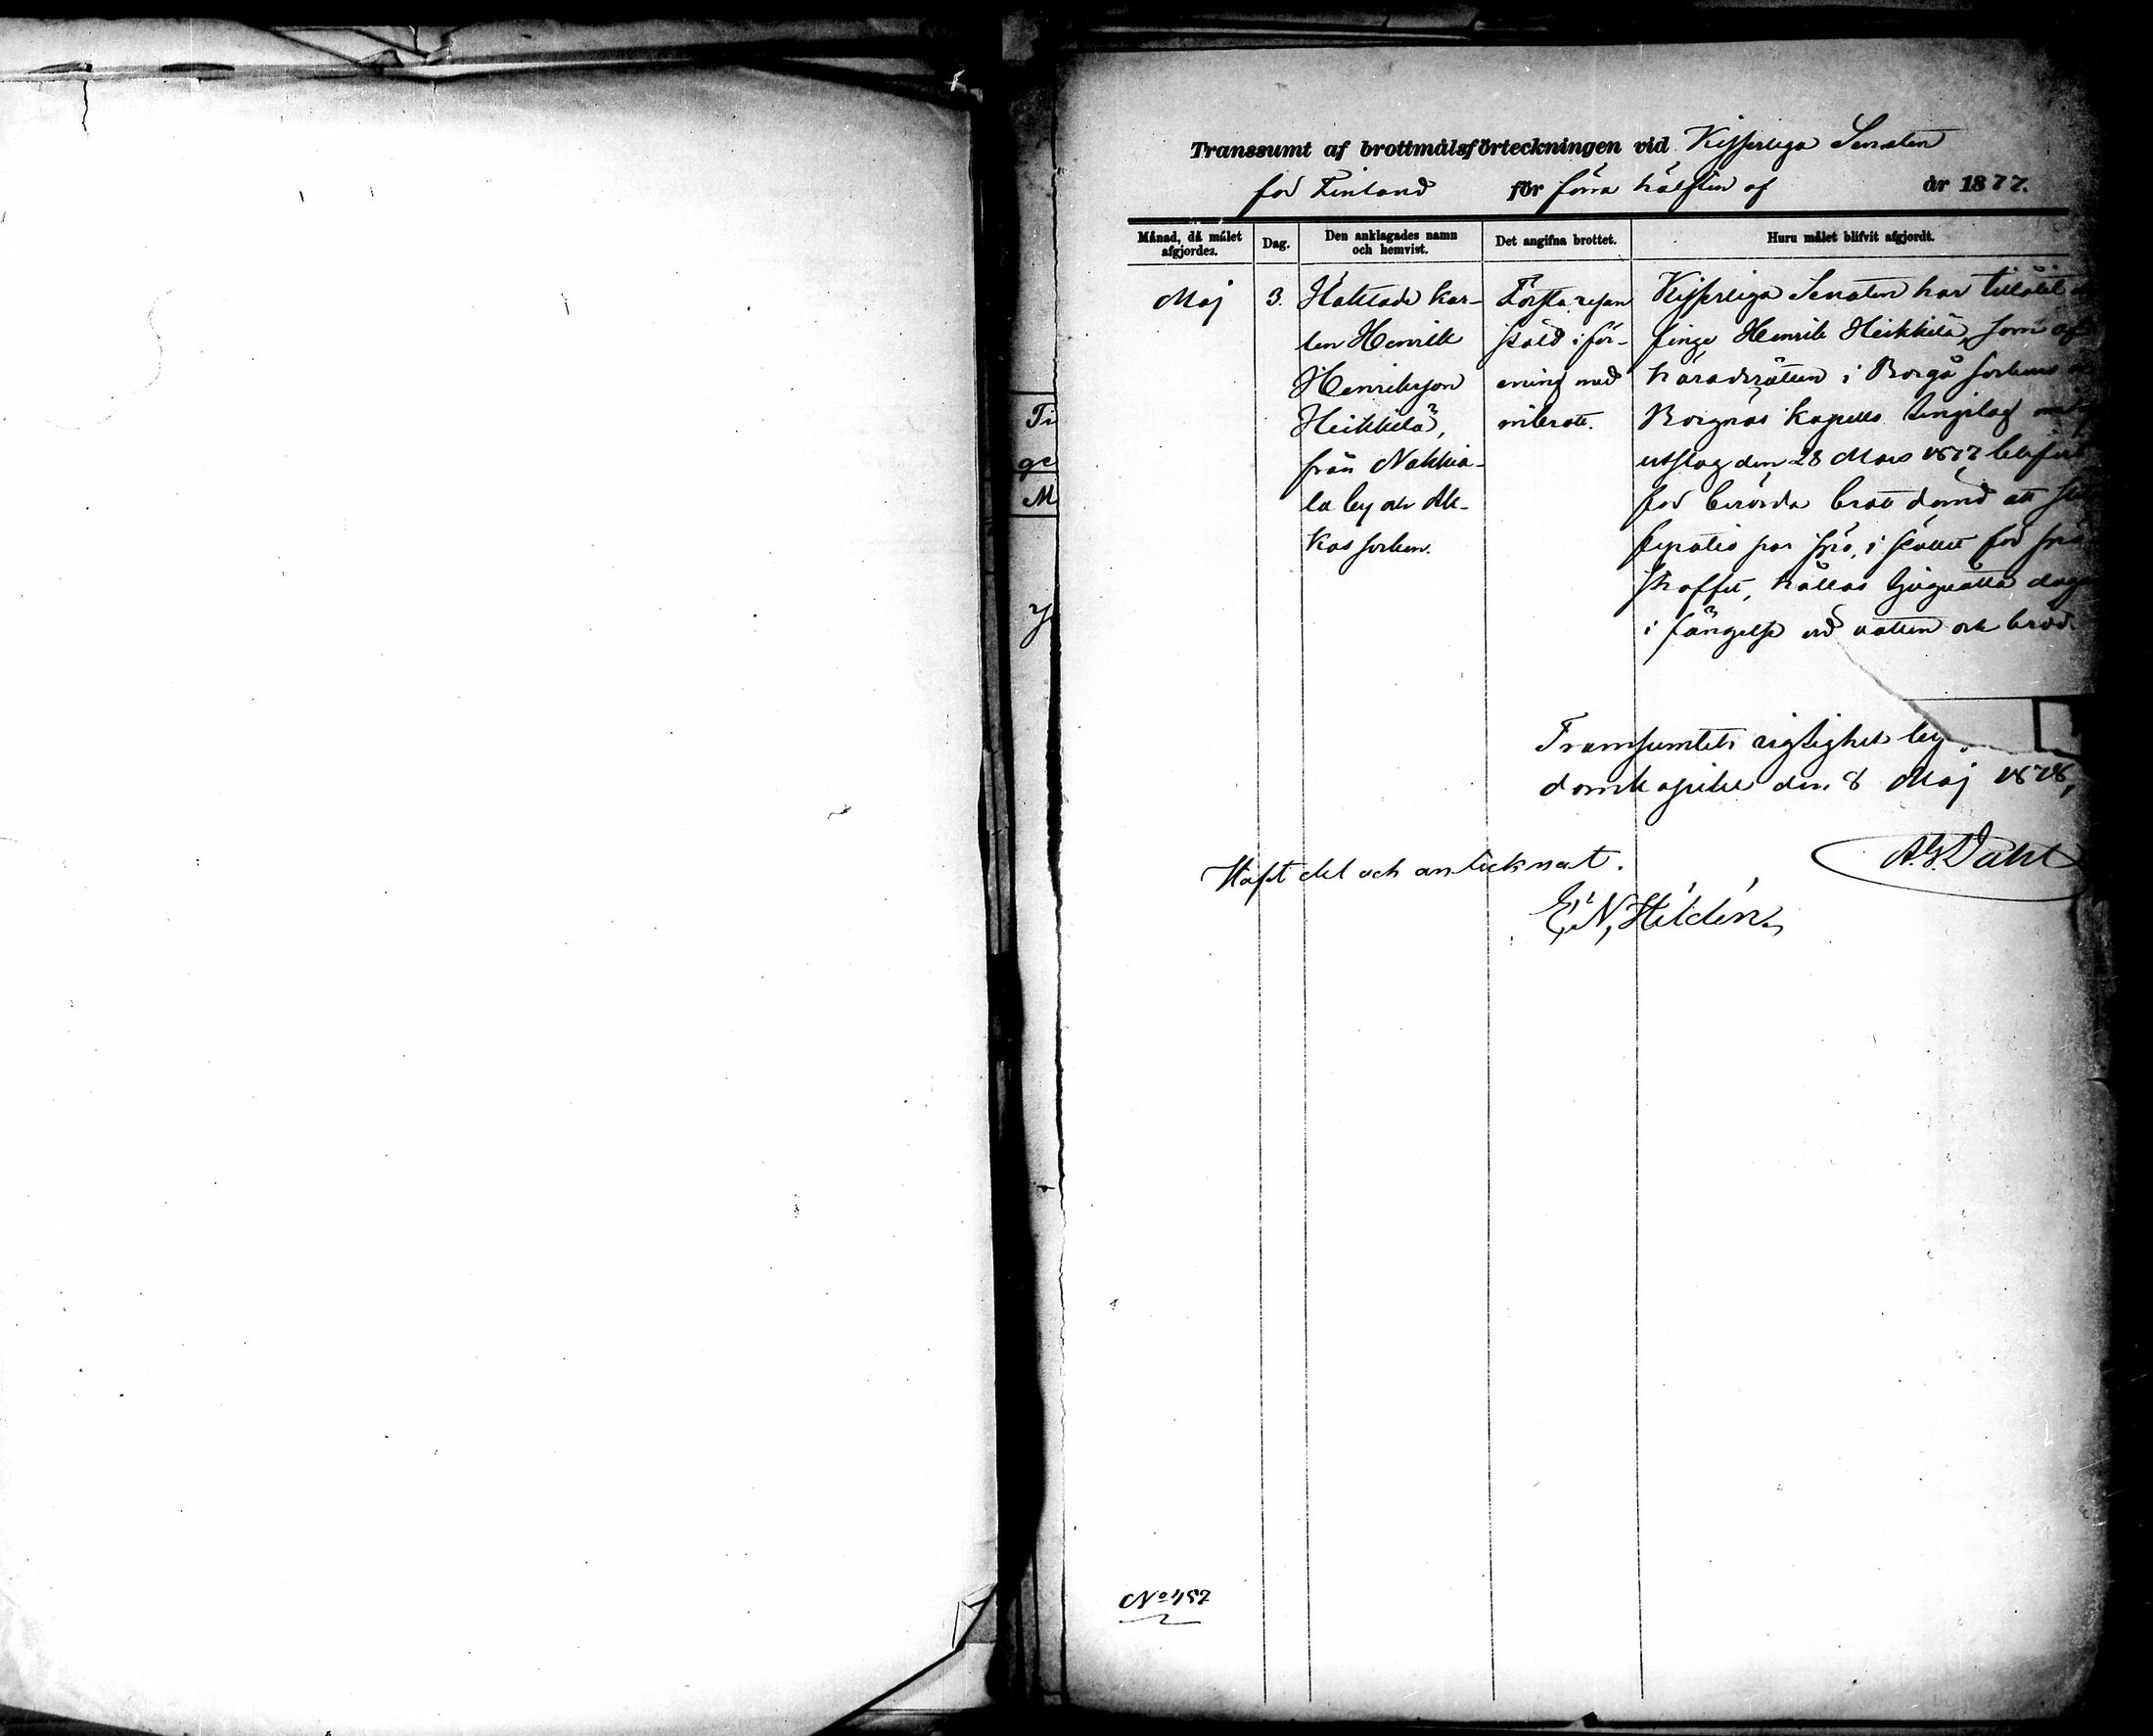 Transsumt af brottmålsförteckningen vid Kejserliga Senaten
för Finland för förra hälften af år 1877.
Månad, då målet afgjordes.
Dag.
Den anklagades namn och hemvist.
Det angifna brottet.
Huru målet blifvit afgjordt.
Maj
3.
Häktade kar-
len Henrik
Henriksson
Heikkilä,
från Nahkia-
la by och Ak-
kas socken.
Första resan
stöld i för-
ening med
inbrott.
Kejserliga Senaten har tillåtit
Henrik Heikkilä, som af
häradsrätten i Borgå sockens
Borgnäs kapells tingslag
utslag den 28 Mars 1877 blifvit
för berörda brott dömd att
par spö, i stället för spö
straffet, hållas tjuguåtta dagar
i fängelse vid vatten och bröd.
Transsumtets rigtighet
domkapitlet den 8 Maj 1878,
A. G. Dahl
Haft del och antecknat.
E. N. Hildén
Ti
ge
M
No 457